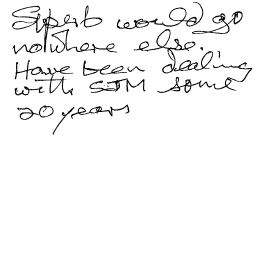 Superb would go
nowhere else.
Have been dealing
with SJM some
20 years